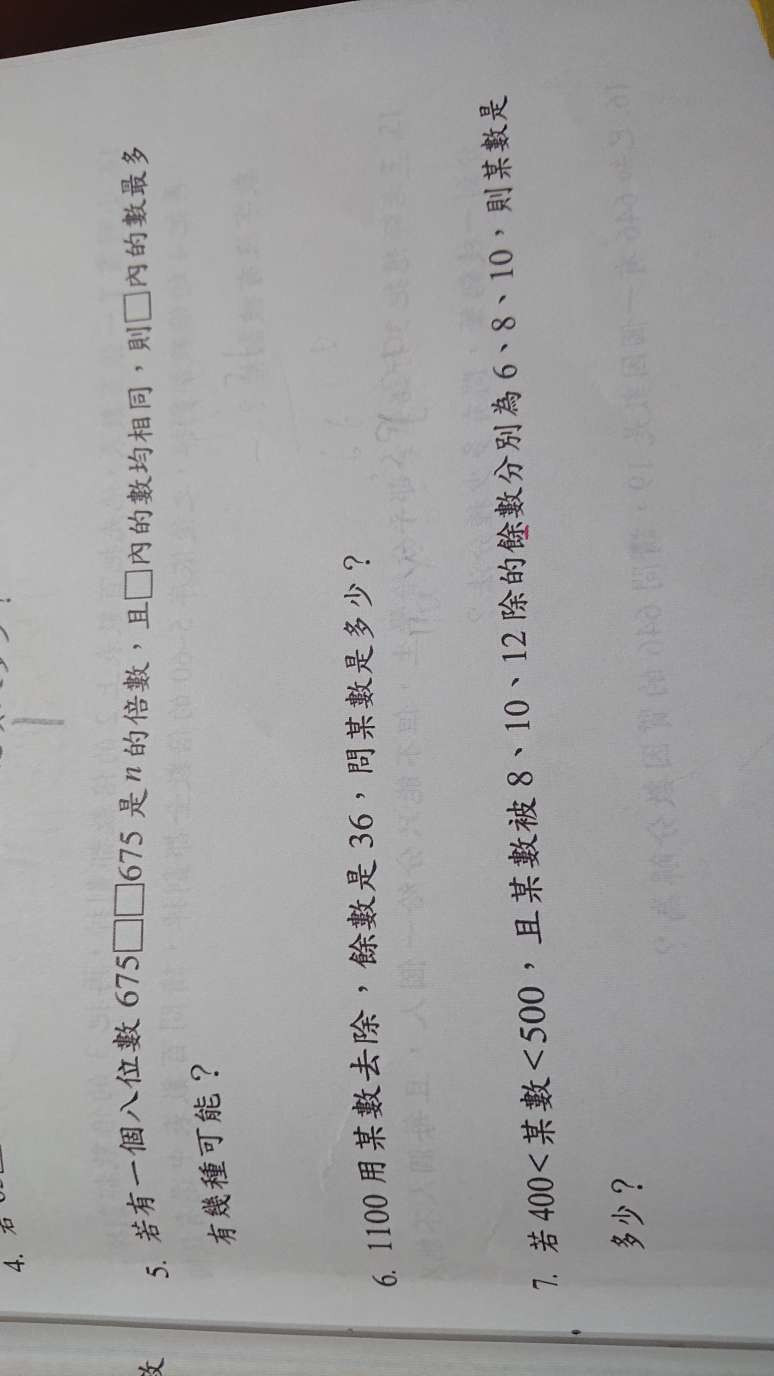 4. 若
5. 若有一個八位數 675□□675 是 n 的倍數，且□內的數均相同，則□內的數最多
有幾種可能？
6. 1100 用某數去除，餘數是 36，問某數是多少？
7. 若 400<某數<500，且某數被 8、10、12 除的餘數分別為 6、8、10，則某數是
多少？